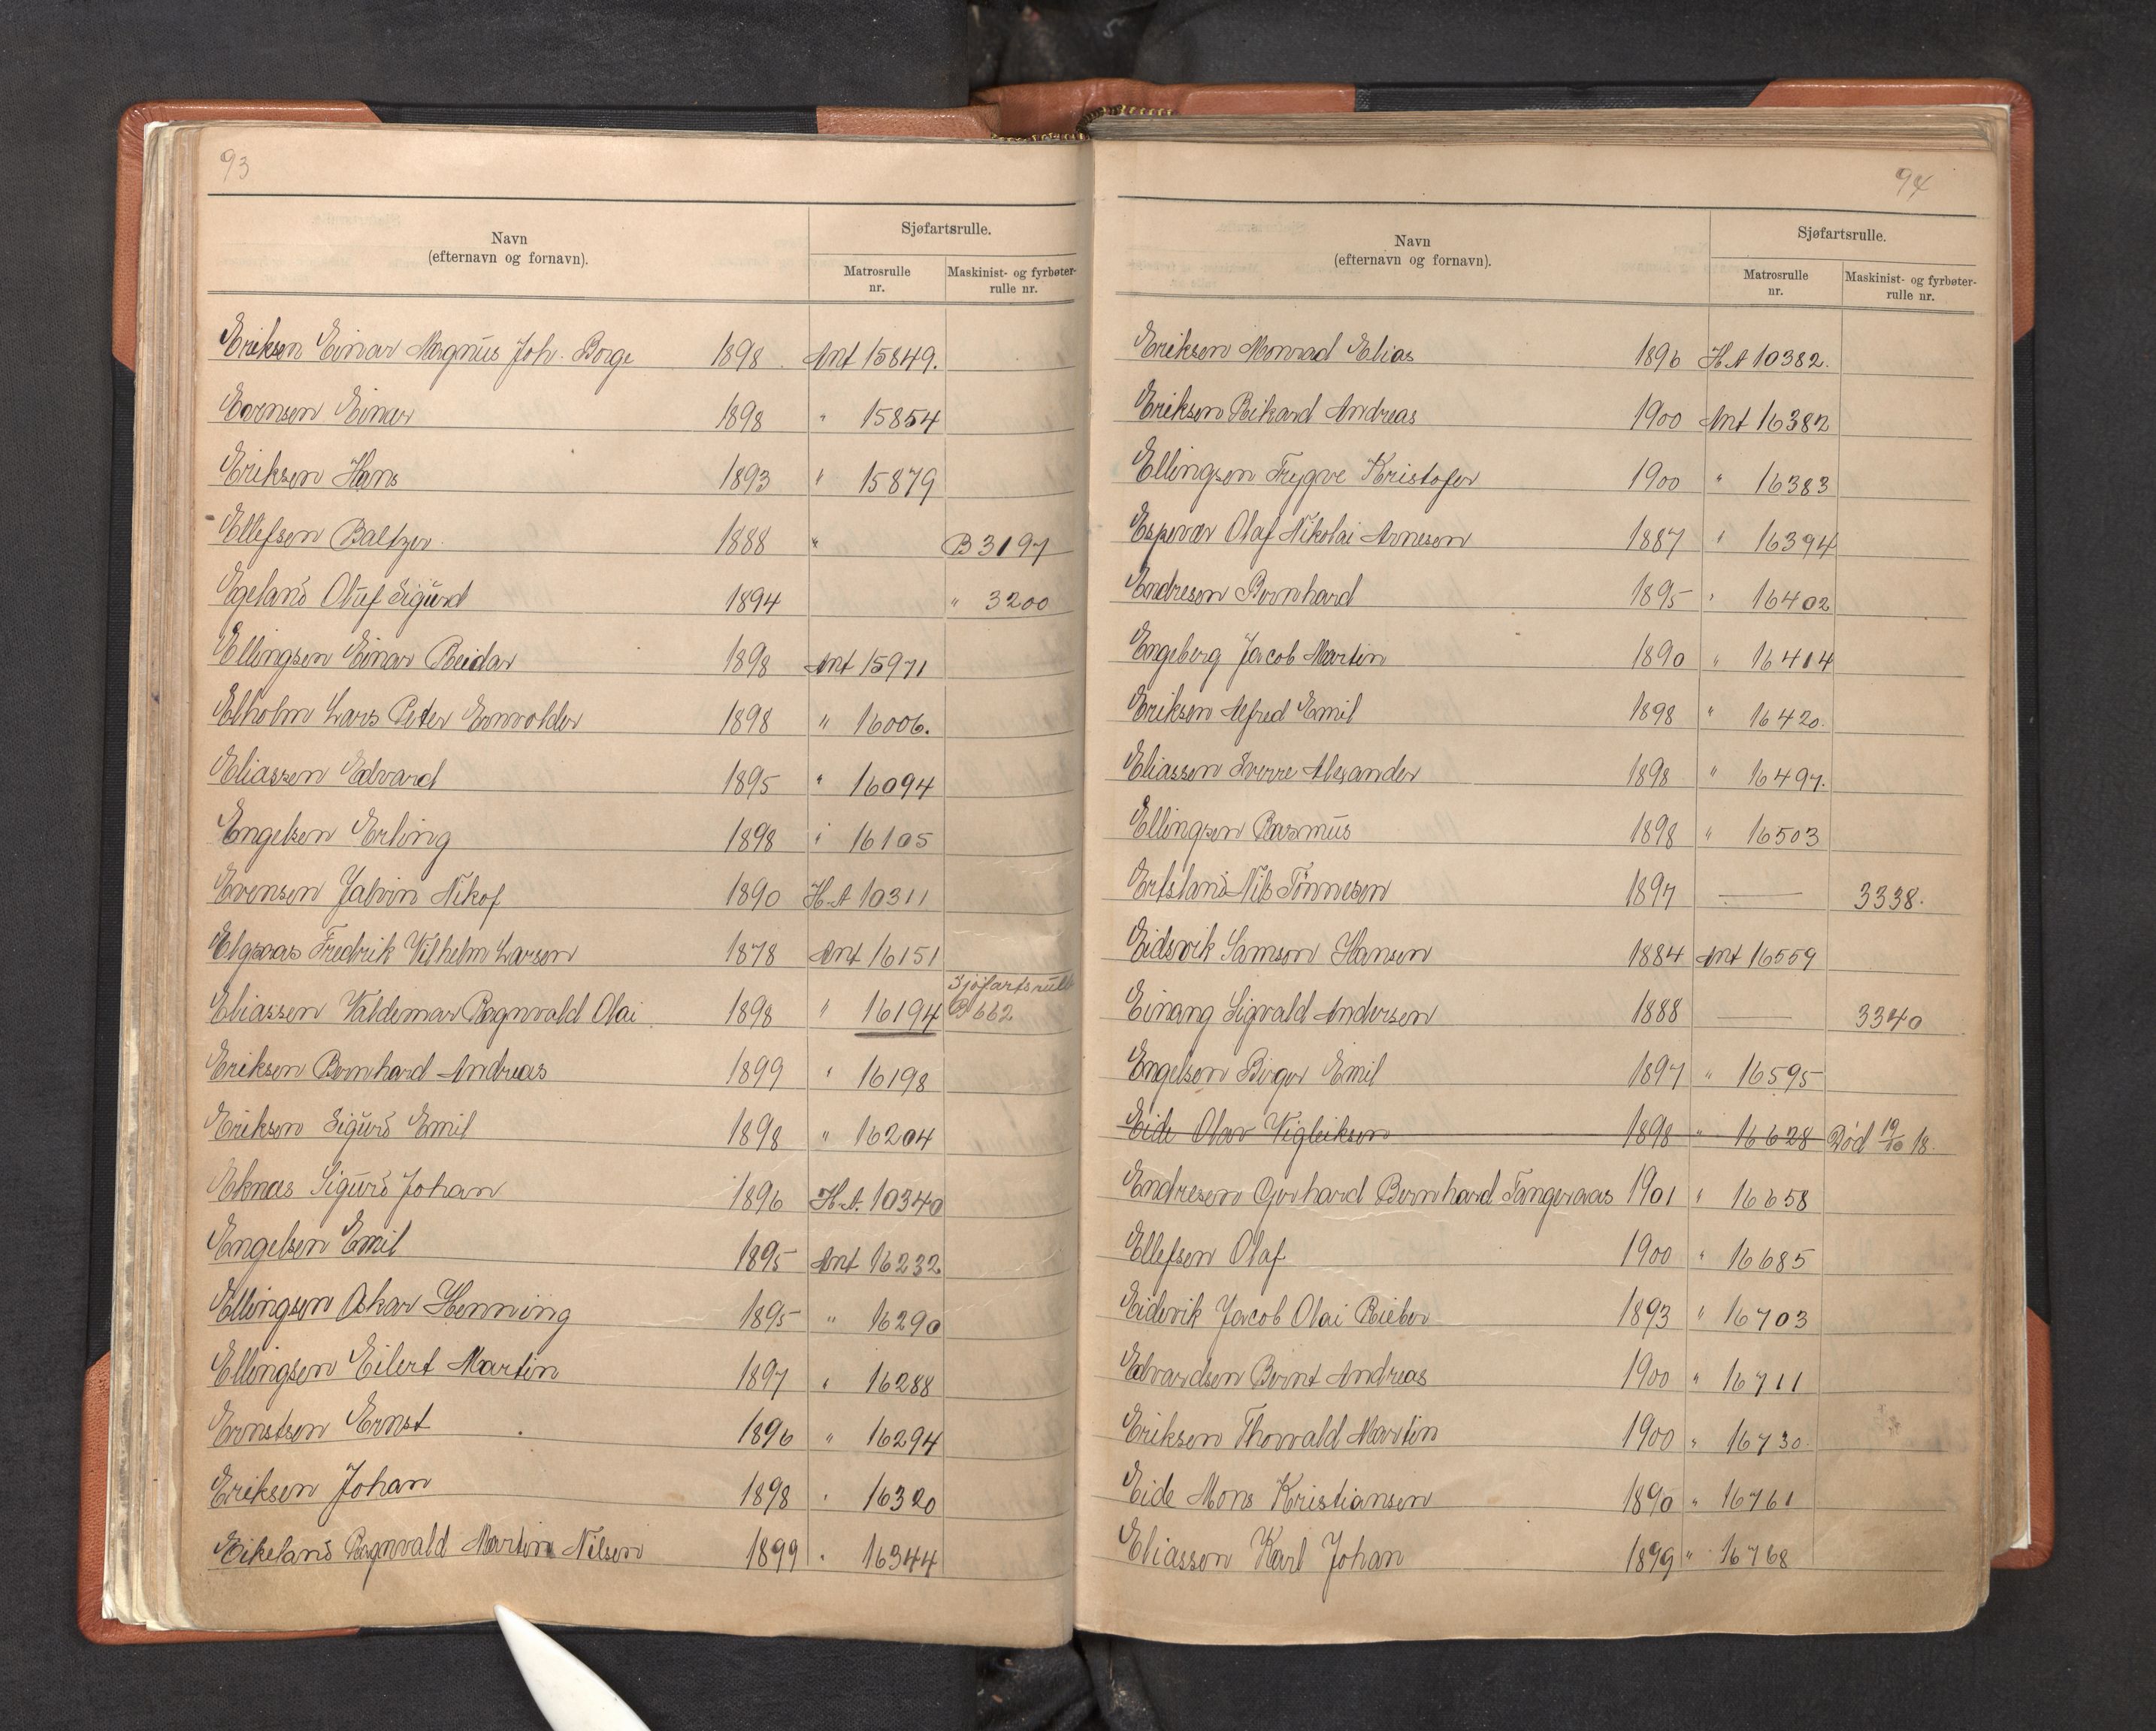 93
Navn
(efternavn og fornavn).
Sjøfartsrulle.
Matrosrulle
nr.
Maskinist- og fyrbøter-
rulle nr.
Eriksen Einar Magnus Joh. Borge 1898 Ant 15849.
Evensen Einar 1898 " 15854
Eriksen Hans 1893 " 15879
Ellefsen Baltzer 1888 " B 3197
Egeland Oluf Sigurd 1894 " 3200
Ellingsen Einar Reidar 1898 Ant 15971
Elholm Lars Peter 1898 " 16006.
Eliassen Edvard 1895 " 16094
Engelsen Erling 1898 " 16105
Evensen Jalvin Nikof 1890 H.A 10311
Elgsaas Fredrik Vilhelm Larsen 1878 Ant 16151
Sjöfartsrulle
Eliassen Valdemar Ragnvald Olai 1898 " 16194 B 662
Eriksen Bernhard Andreas 1899 " 16198
Eriksen Sigurd Emil 1898 " 16204
Eknes Sigurd Johan 1896 H.A. 10340
Engelsen Emil 1895 Ant 16232
Ellingsen Oskar Henning 1895 " 16290
Ellingsen Eilert Martin 1897 " 16288
Ernstsen Ernst 1896 " 16294
Eriksen Johan 1898 " 16320
Eikeland Ragnvald Martin Nilsen 1899 " 16344
94
Navn
(efternavn og fornavn).
Sjøfartsrulle.
Matrosrulle
nr.
Maskinist- og fyrbøter-
rulle nr.
Eriksen Monrad Elias 1896 H.A 10382.
Eriksen Rikard Andreas 1900 Ant 16382
Ellingsen Trygve Kristofer 1900 " 16383
Espevær Olaf Nikolai Arnesen 1887 " 16394
Endresen Bernhard 1895 " 16402
Engeberg Jacob Martin 1890 " 16414
Eriksen Alfred Emil 1898 " 16420.
Eliassen Sverre Alexander 1898 " 16497.
Ellingsen Rasmus 1898 " 16503
Ertsland Nils Tönnesen 1897 — 3338.
Eidsvik Samson Hansen 1884 Ant 16559
Einang Sigvald Andersen 1888 — 3340
Engelsen Birger Emil 1897 " 16595
Eide Olav Vigleiksen 1898 " 16628 Död 19/10 18.
Endresen Gerhard Bernhard Tangeraas 1901 " 16658
Ellefsen Olaf 1900 " 16685
Eidevik Jacob Olai Rieber 1893 " 16703
Edvardsen Bernt Andreas 1900 " 16711
Eriksen Thorvald Martin 1900 " 16730.
Eide Mons Kristiansen 1890 " 16761
Eliassen Karl Johan 1899 " 16768